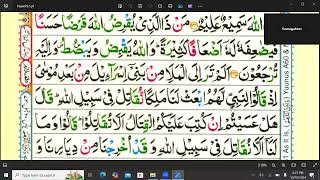 اللّٰهَ سَمِيۡعٌ عَلِيۡمٌ ۝ مَنۡ ذَا الَّذِىۡ يُقۡرِضُ اللّٰهَ قَرۡضًا حَسَنًا
فَيُضٰعِفَهٗ لَهٗۤ اَضۡعَافًا كَثِيۡرَةً ؕ وَاللّٰهُ يَقۡبِضُ وَيَبۡصُۜطُ وَاِلَيۡهِ
تُرۡجَعُوۡنَ ۝ اَلَمۡ تَرَ اِلَى الۡمَلَاِ مِنۡۢ بَنِىۡۤ اِسۡرَآءِيۡلَ مِنۡۢ بَعۡدِ مُوۡسٰى ۘ
اِذۡ قَالُوۡا لِنَبِىٍّ لَّهُمُ ابۡعَثۡ لَنَا مَلِكًا نُّقَاتِلۡ فِىۡ سَبِيۡلِ اللّٰهِ ؕ قَالَ
هَلۡ عَسَيۡتُمۡ اِنۡ كُتِبَ عَلَيۡکُمُ الۡقِتَالُ اَلَّا تُقَاتِلُوۡا ؕ قَالُوۡا وَمَا
لَنَآ اَلَّا نُقَاتِلَ فِىۡ سَبِيۡلِ اللّٰهِ وَقَدۡ اُخۡرِجۡنَا مِنۡ دِيَارِنَا وَ
Yuunus A60
As It Is,